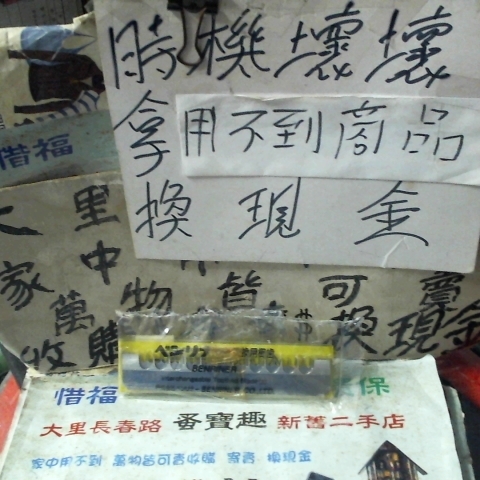 時機壞壞
拿用不到商品
換現金
惜福
大里
家中
萬物皆可賣
收購
換現金
BENRINER
惜福
保
大里長春路 蚤寶趣 新舊二手店
家中用不到 萬物皆可香收購 寄賣 換現金